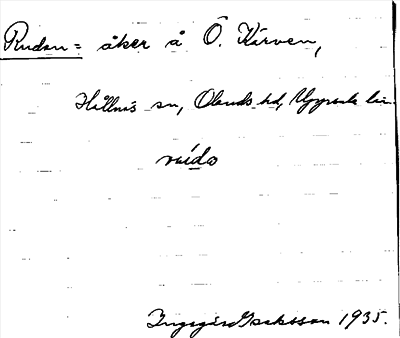 Rudan = åker å Ö. Kärven,
Hållnäs sn, Olands hd, Uppsala län
Ingegärd Isaksson 1935.